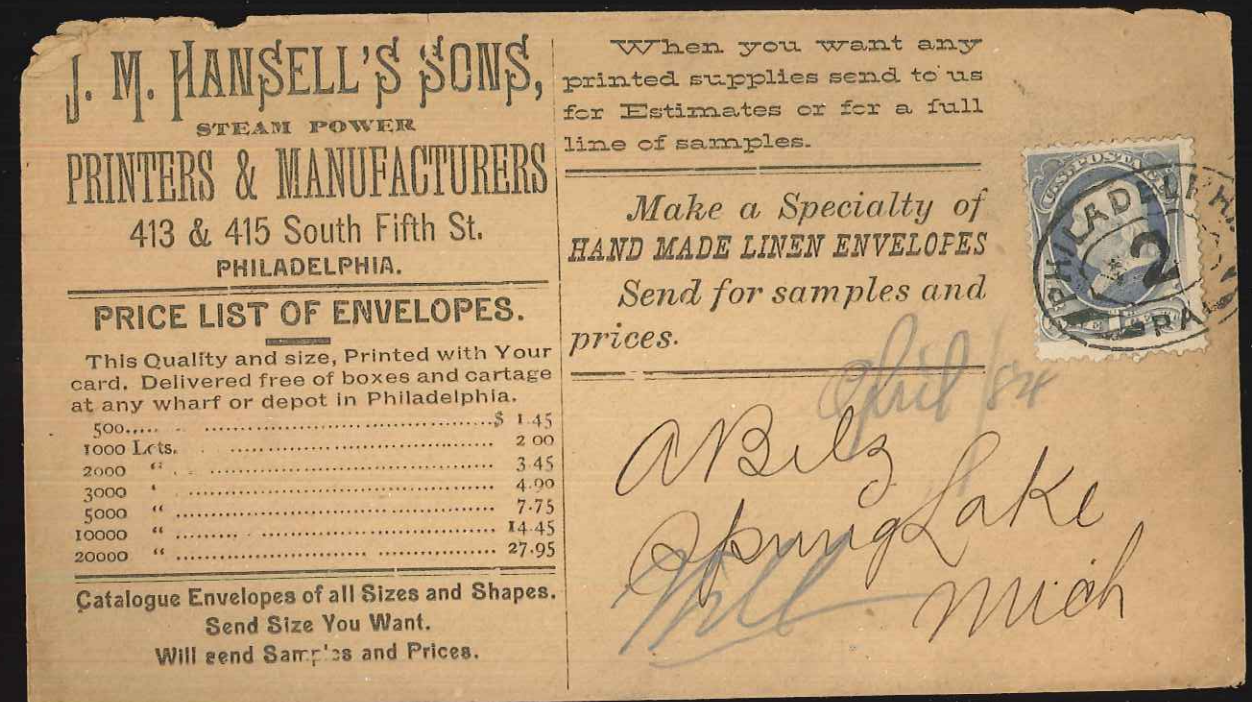 J. M. HANSELL'S SONS,
STEAM POWER
PRINTERS & MANUFACTURERS
413 & 415 South Fifth St.
PHILADELPHIA.
PRICE LIST OF ENVELOPES.
This Quality and size, Printed with Your
card. Delivered free of boxes and cartage
at any wharf or depot in Philadelphia.
500..... ........................................$ 1.45
1000 Lots. ........................................ 2 00
2000 “ ........................................ 3.45
3000 ‘ ........................................ 4.90
5000 “ ........................................ 7.75
10000 “ ........................................ 14.45
20000 “ ........................................ 27.95
Catalogue Envelopes of all Sizes and Shapes.
Send Size You Want.
Will send Samples and Prices.
When you want any
printed supplies send to us
for Estimates or for a full
line of samples.
Make a Specialty of
HAND MADE LINEN ENVELOPES
Send for samples and
prices.
April /84
A Bilz
Spring Lake
Mich
U.S. POSTA
PHILADELPHI
2
PA